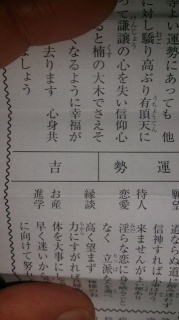 よい運勢にあっても 他
に対し驕り高ぶり有頂天に
って謙譲の心を失い信仰心
ると楠の大木でさえそ
くなるように幸福が
去ります 心身共
しょう
運勢 吉
願望 道ならぬ道
信神すれば
待人 来ませんが
恋愛 淫らな恋に
なく 立派な
縁談 高く望まず
力にすがれ
お産 体を大事に
進学 早く迷いか
に向けて努